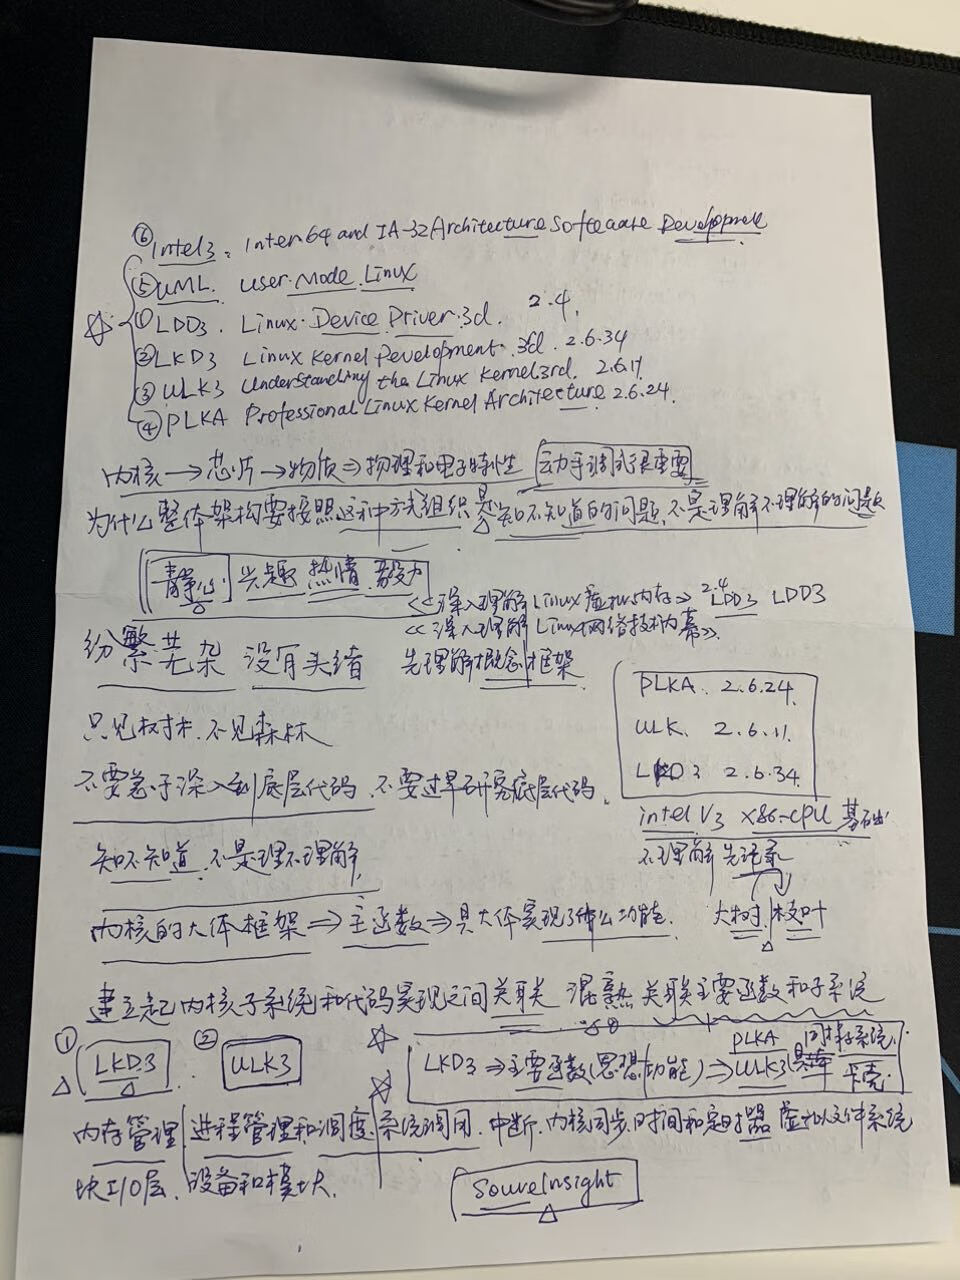 ⑥ Intel3: Inter 64 and IA-32 Architecture Software Developme
⑤ UML. user.Mode.Linux
① LDD3. Linux.Device Driver.3d. 2.4.
② LKD3 Linux Kernel Development. 3d. 2.6.34
③ ULK3 Understanding the Linux Kernel 3rd. 2.6.11.
④ PLKA Professional Linux Kernel Architecture 2.6.24.
内核→芯片→物质⇒物理和电子特性 动手调试很重要
为什么整体架构要按照这种方式组织是知不知道的问题,不是理解不理解的问题
静心. 兴趣 热情 毅力
<<深入理解Linux虚拟内存>> 2.4 LDD3 LDD3
<<深入理解Linux网络技术内幕>>.
纷繁芜杂 没有头绪 先理解概念框架
PLKA. 2.6.24.
只见树木.不见森林 ULK. 2.6.11.
不要急于深入到底层代码.不要过早研究底层代码. LKD3 2.6.34
intel V3 x86-cpu 基础
知不知道.不是理不理解. 不理解先记录
内核的大体框架⇒主函数⇒具大体实现了什么功能. 大树 枝叶
建立起内核子系统和代码实现之间关联 混熟 关联主要函数和子系统
① LKD3 ② ULK3 LKD3⇒主要函数(思想/功能)⇒PLKA ULK3 同样子系统. 卡壳
内存管理 进程管理和调度 系统调用.中断.内核同步.时间和定时器 虚拟文件系统
块I/O层. 设备和模块.
SourceInsight